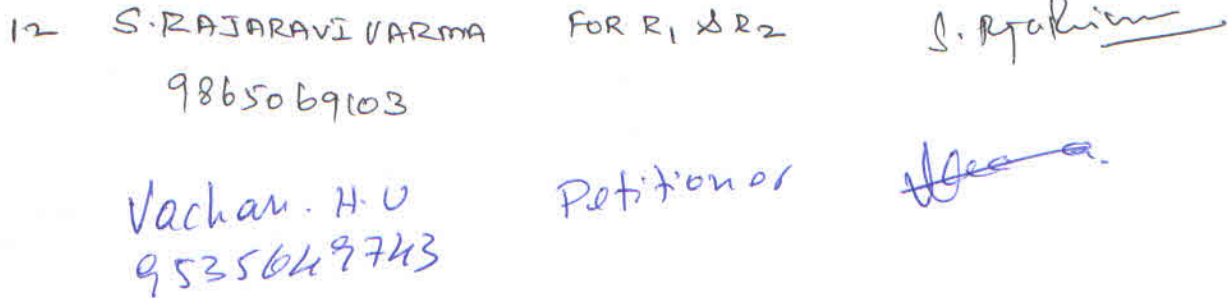 12 S. RAJARAVI VARMA FOR R1 & R2
9865069103
Vachan. H. U Petitioner
9535649743